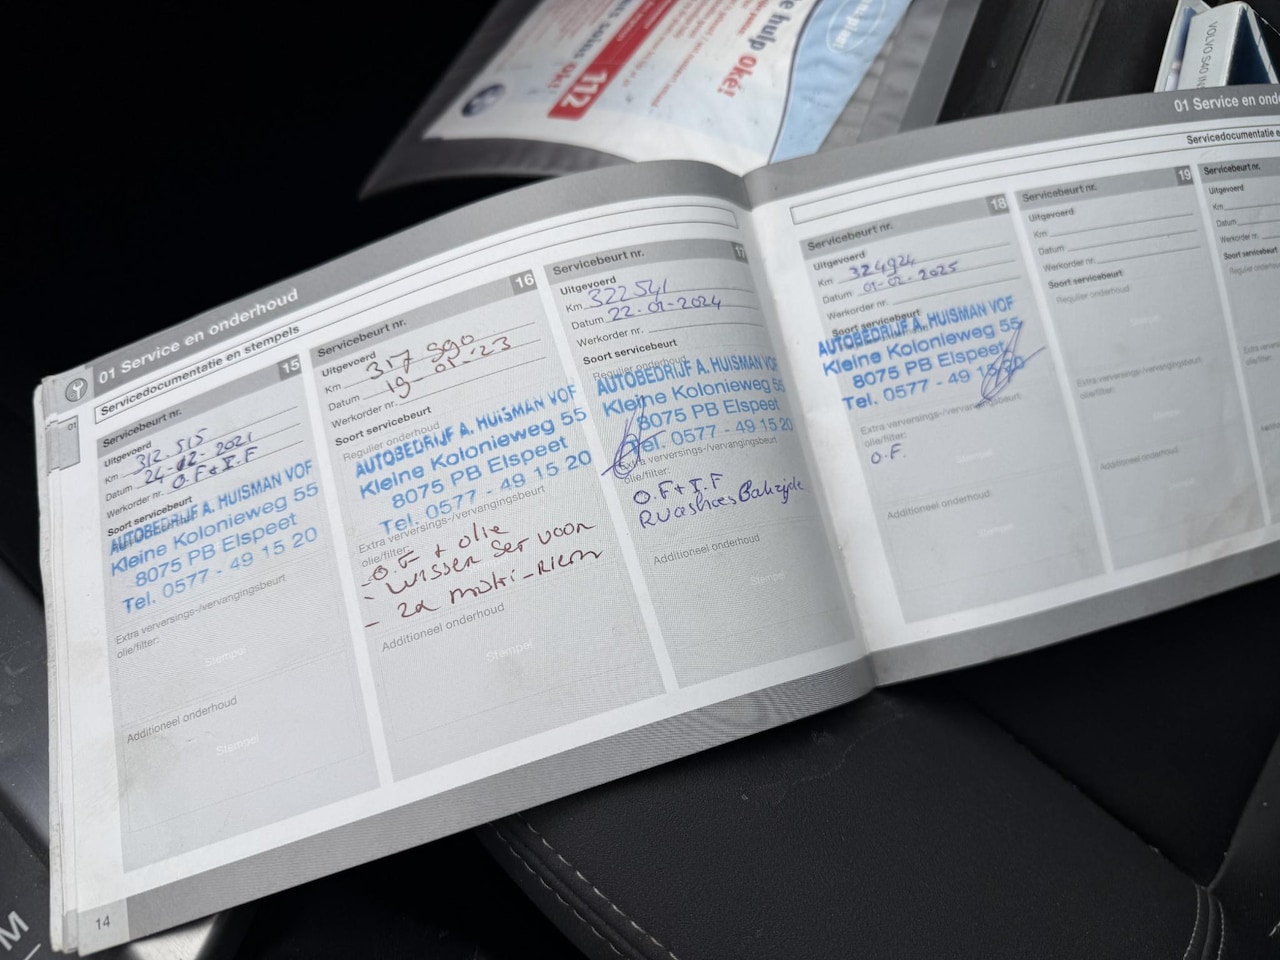 hulp Oké!
112
VOLVO S40
01 Service en onderhoud
Servicedocumentatie en stempels
Servicebeurt nr. 15
Uitgevoerd
Km 312.515
Datum 24-02-2021
Werkorder nr. O.F + I.F
Soort servicebeurt
AUTOBEDRIJF A. HUISMAN VOF
Kleine Kolonieweg 55
8075 PB Elspeet
Tel. 0577 - 49 15 20
Extra verversings-/vervangingsbeurt
olie/filter:
Stempel
Additioneel onderhoud
Stempel
14
Servicebeurt nr. 16
Uitgevoerd
Km 317 990
Datum 19-01-'23
Werkorder nr.
Soort servicebeurt
Regulier onderhoud
AUTOBEDRIJF A. HUISMAN VOF
Kleine Kolonieweg 55
8075 PB Elspeet
Tel. 0577 - 49 15 20
Extra verversings-/vervangingsbeurt
olie/filter:
- O.F + olie
- wisser set voor
- 2x multi-riem
Additioneel onderhoud
Stempel
Servicebeurt nr. 17
Uitgevoerd
Km 322541
Datum 22-01-2024
Werkorder nr.
Soort servicebeurt
Regulier onderhoud
AUTOBEDRIJF A. HUISMAN VOF
Kleine Kolonieweg 55
8075 PB Elspeet
Tel. 0577 - 49 15 20
Extra verversings-/vervangingsbeurt
olie/filter:
O.F + I.F
Additioneel onderhoud
Stempel
01 Service en onde
Servicedocumentatie e
Servicebeurt nr. 18
Uitgevoerd
Km 324924
Datum 01-02-2025
Werkorder nr.
Soort servicebeurt
AUTOBEDRIJF A. HUISMAN VOF
Kleine Kolonieweg 55
8075 PB Elspeet
Tel. 0577 - 49 15 20
Extra verversings-/vervangingsbeurt:
olie/filter:
O.F.
Stempel
Additioneel onderhoud
Servicebeurt nr. 19
Uitgevoerd
Km
Datum
Werkorder nr.
Soort servicebeurt
Regulier onderhoud:
Extra verversings-/vervangingsbeurt
olie/filter:
Additioneel onderhoud
Servicebeurt nr.
Uitgevoerd
Km
Datum
Werkorder nr.
Soort servicebeurt